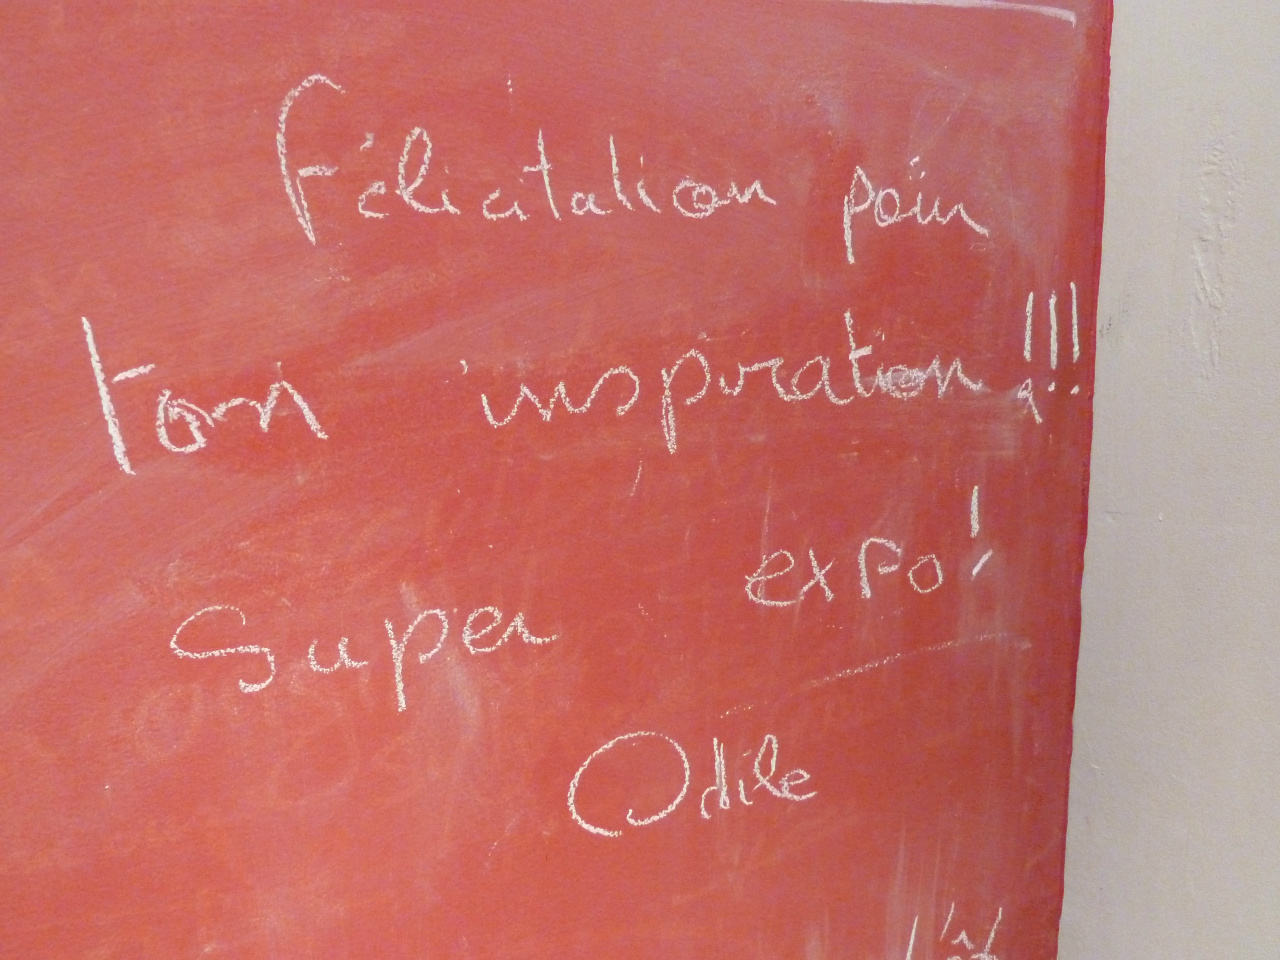 Félicitation pour
ton inspiration !!!
Super expo !
Odile